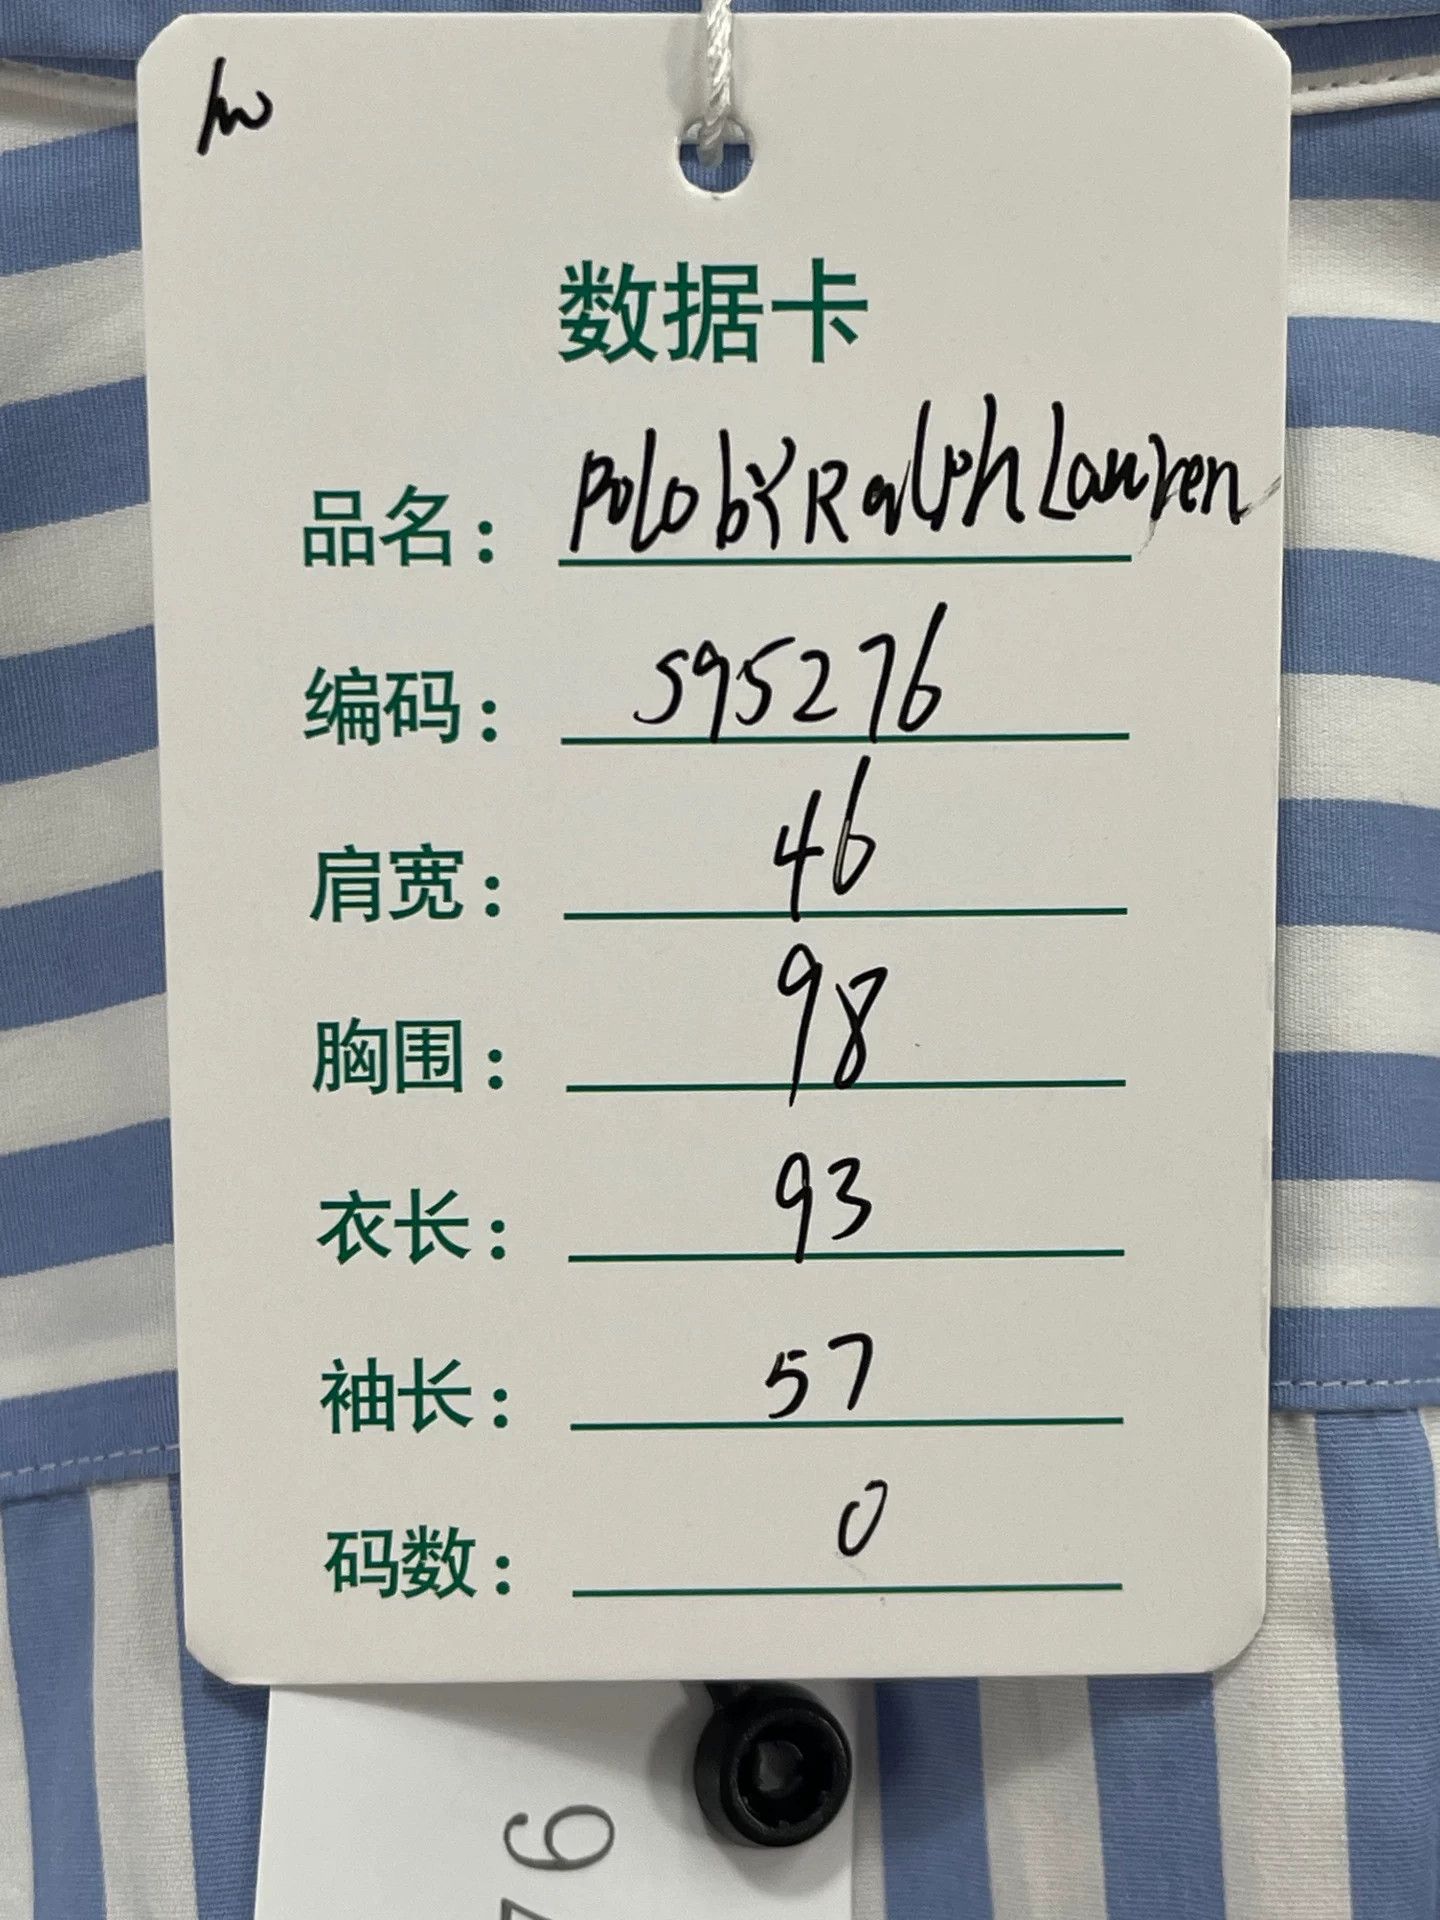 数据卡
品名: Polo bY Ralph Lauren
编码: 595276
肩宽: 46
胸围: 98
衣长: 93
袖长: 57
码数: 0